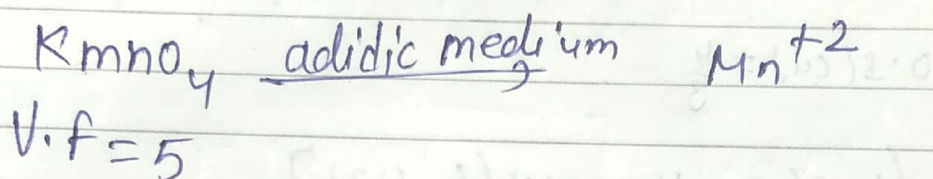 Kmno₄ adidic medium → Mn⁺²
V.f = 5